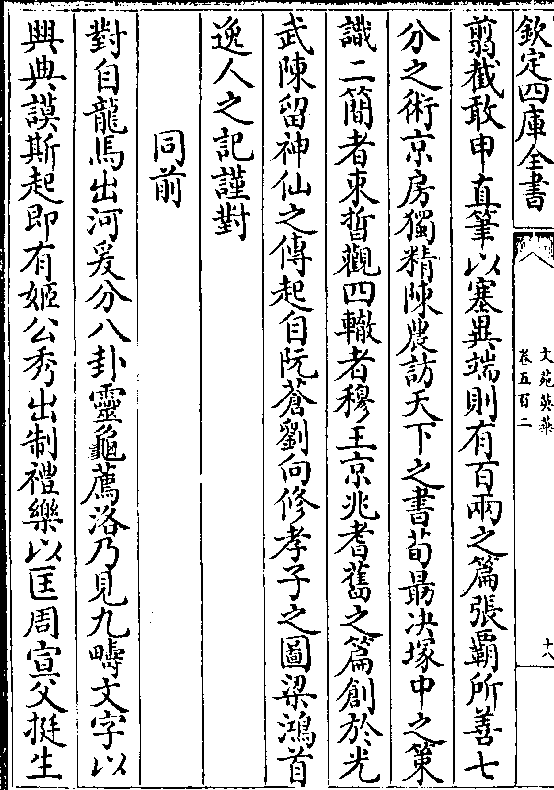 欽定四庫全書
文苑英華
卷五百二
十八
翦截敢申直筆以塞異端則有百兩之篇張霸所善七
分之術京房獨精陳農訪天下之書荀朂决塚中之策
識二簡者束晳觀四轍者穆王京兆耆舊之篇創於光
武陳留神仙之傳起自阮蒼劉向修孝子之圖梁鴻首
逸人之記謹對
同前
對自龍馬出河爰分八卦靈龜薦洛乃見九疇文字以
興典謨斯起即有姬公秀出制禮樂以匡周宣父挺生